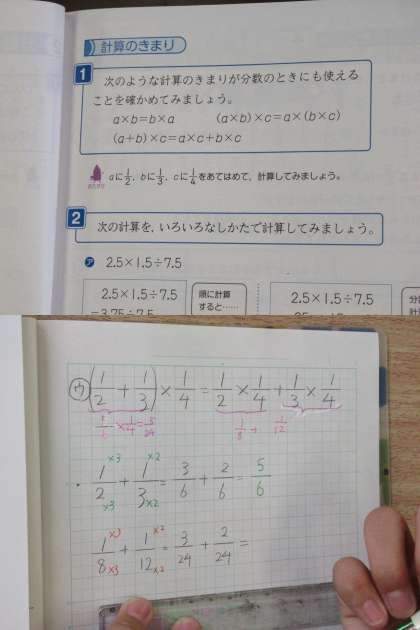 計算のきまり
1 次のような計算のきまりが分数のときにも使える
ことを確かめてみましょう。
a×b=b×a (a×b)×c=a×(b×c)
(a+b)×c=a×c+b×c
aに1/2, bに1/3, cに1/4をあてはめて, 計算してみましょう。
2 次の計算を, いろいろなしかたで計算してみましょう。
ア 2.5×1.5÷7.5
2.5×1.5÷7.5 順に計算 2.5×1.5÷7.5
すると……
=3.75÷7.5
ウ (1/2 + 1/3) × 1/4 = 1/2 × 1/4 + 1/3 × 1/4
5/6 × 1/4 = 5/24 1/8 + 1/12
×3 ×2
1/2 + 1/3 = 3/6 + 2/6 = 5/6
×3 ×2
×3 ×2
1/8 + 1/12 = 3/24 + 2/24 =
×3 ×2